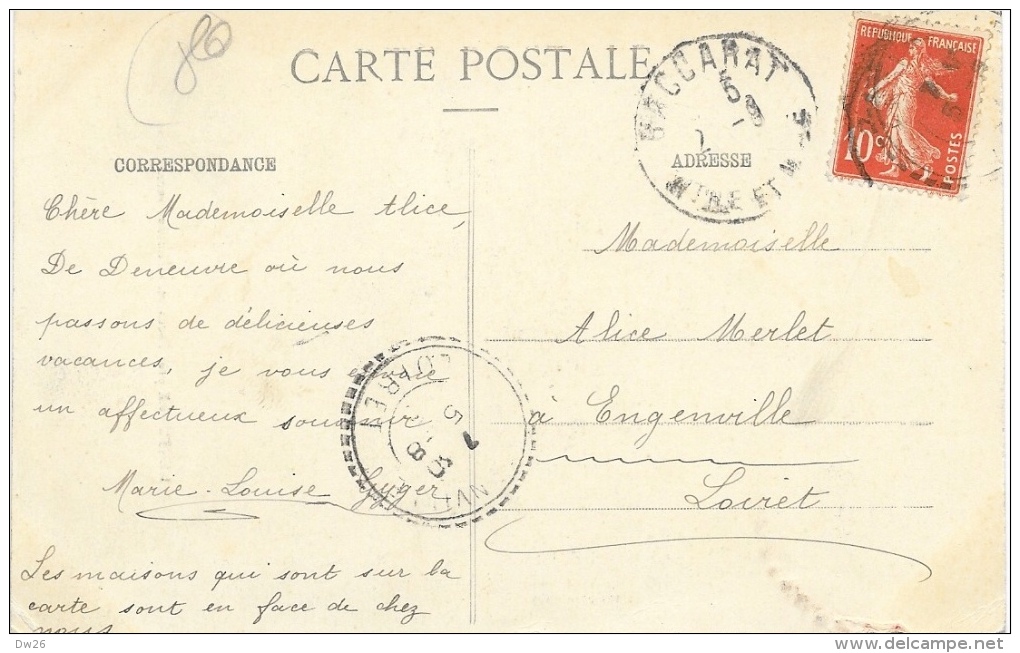 CARTE POSTALE
RÉPUBLIQUE FRANÇAISE
10c
POSTES
BACCARAT
5
2 -8
MTHE ET M
CORRESPONDANCE
ADRESSE
Chère Mademoiselle Alice,
De Deneuvre où nous
passons de délicieuses
vacances, je vous envoie
un affectueux souvenir
Marie-Louise
Les maisons qui sont sur la
carte sont en face de chez
nous
Mademoiselle
Alice Merlet
à Engenville
Loiret
LOIRET
5
8
Dw26
www.delcampe.net